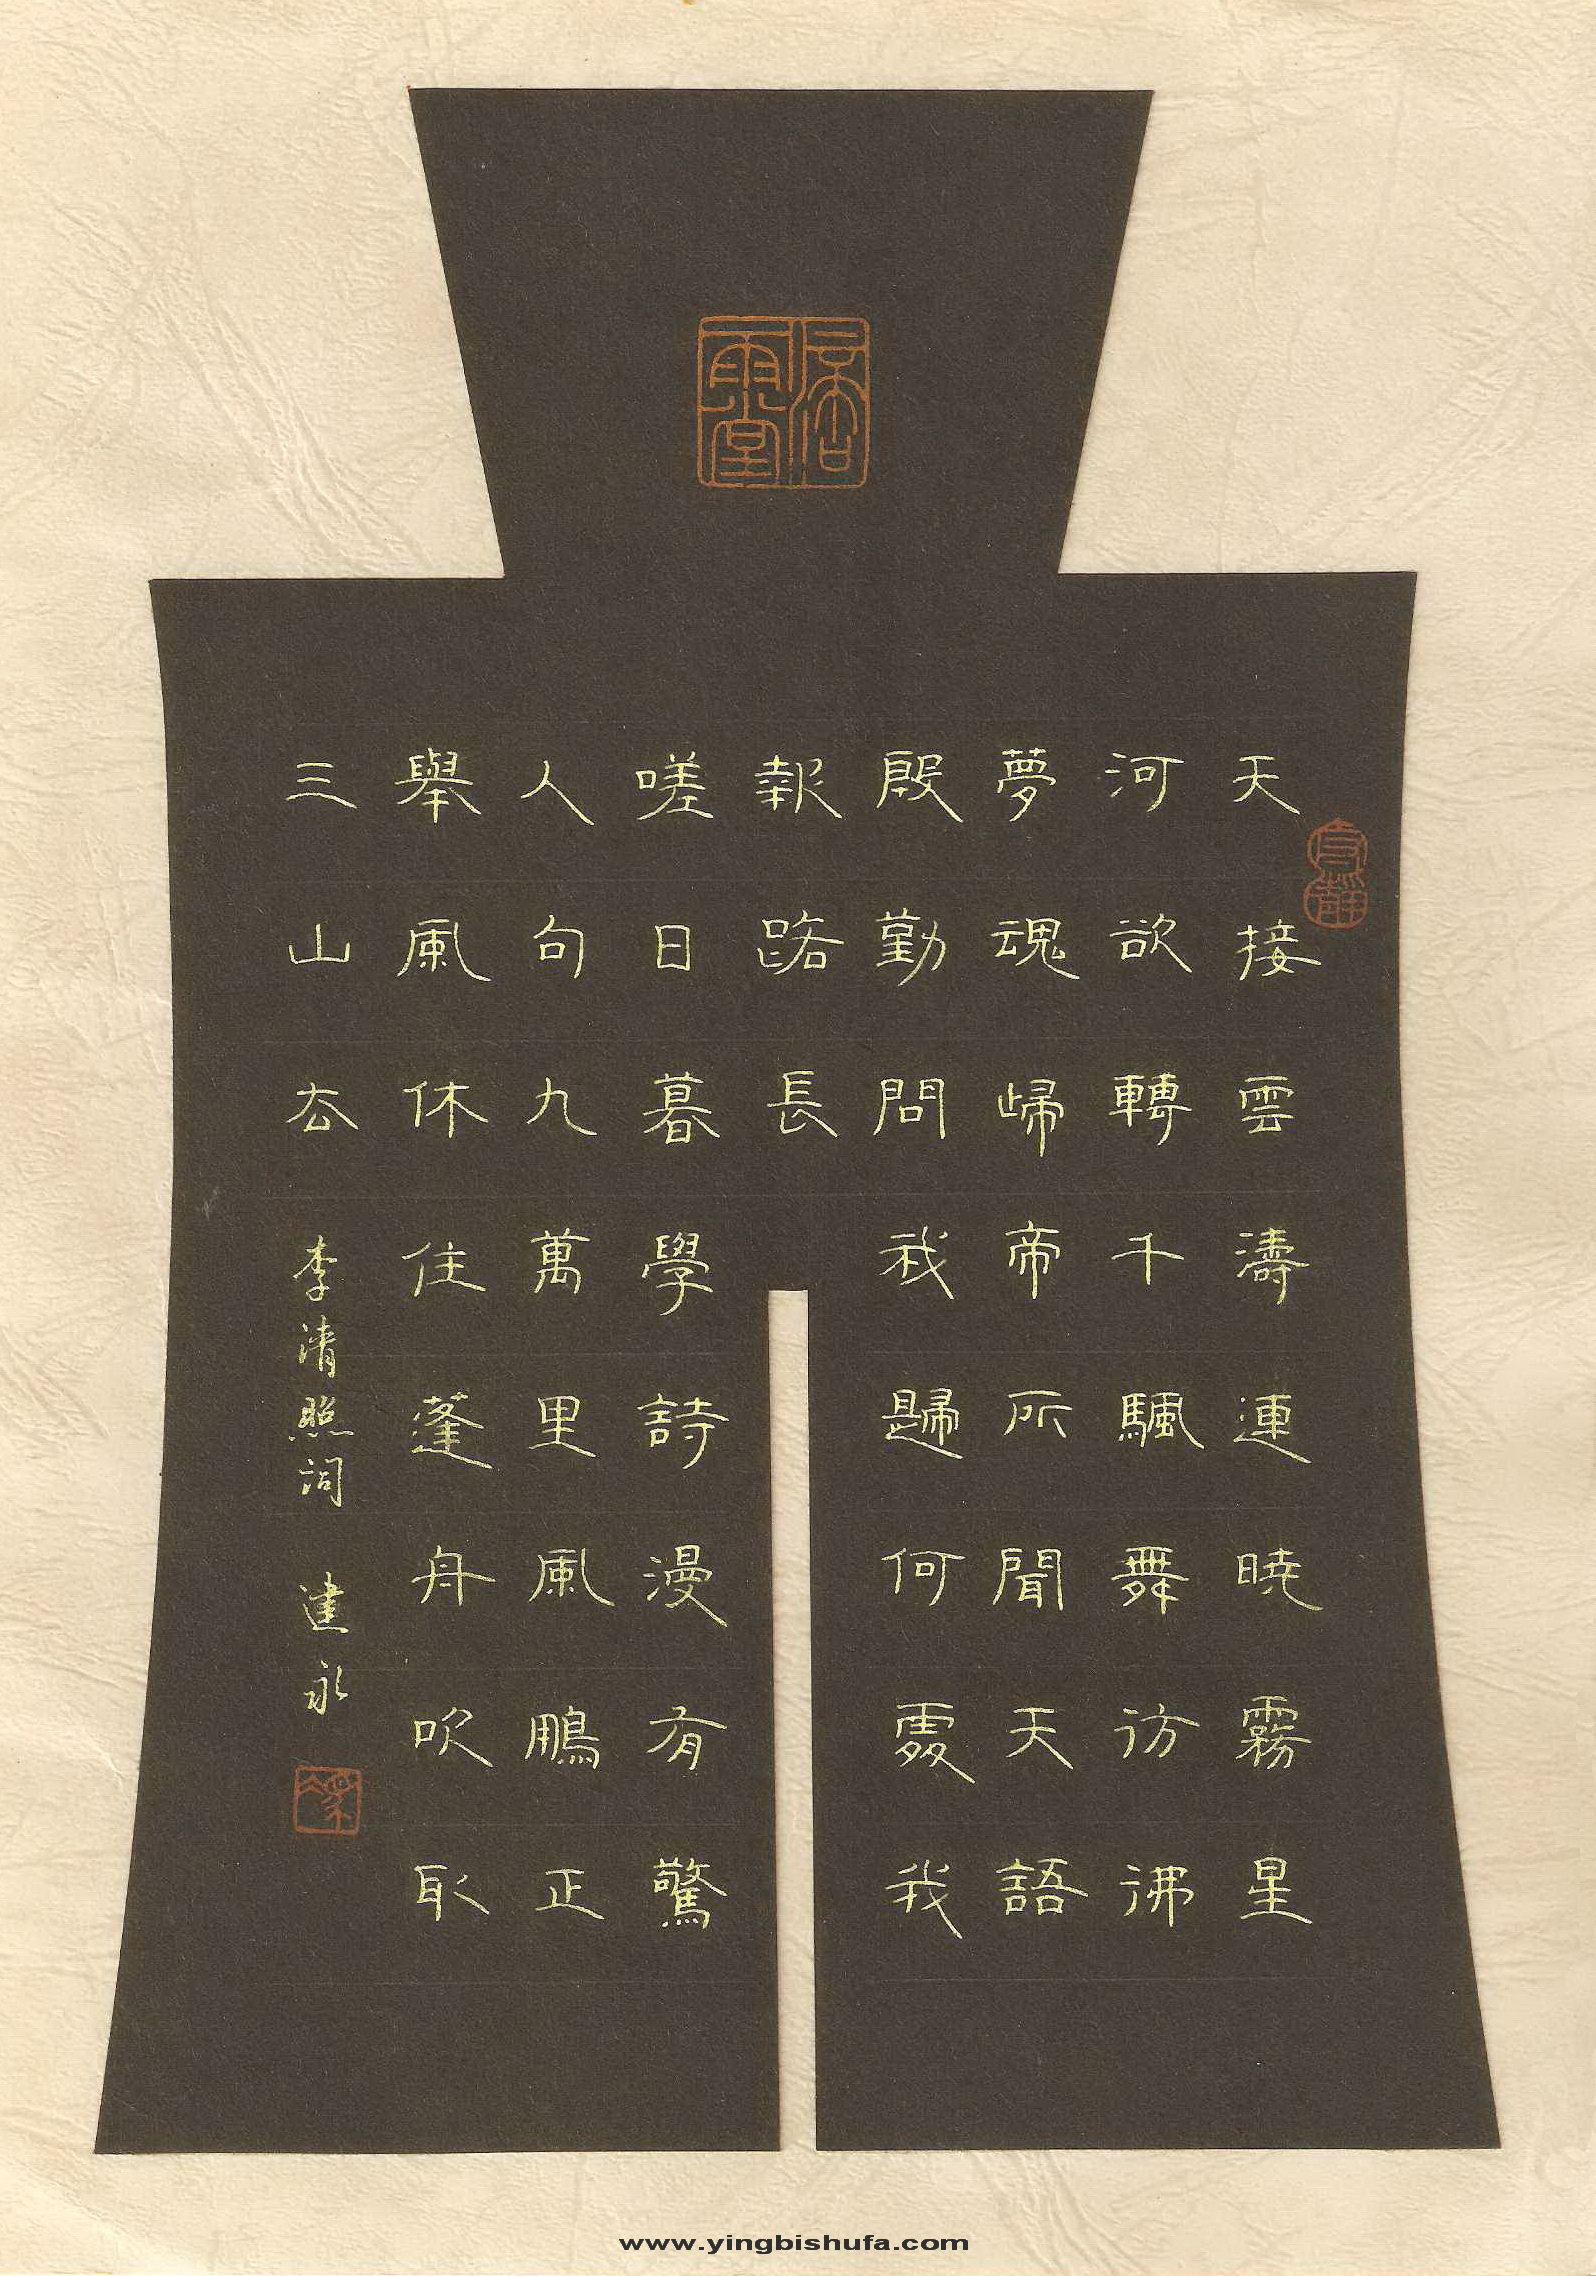 天接雲濤連曉霧星
河欲轉千颿舞彷彿
夢魂歸帝所聞天語
殷勤問我歸何處我
報路長
嗟日暮學詩漫有驚
人句九萬里風鵬正
舉風休住蓬舟吹取
三山去
李清照詞 建永
www.yingbishufa.com